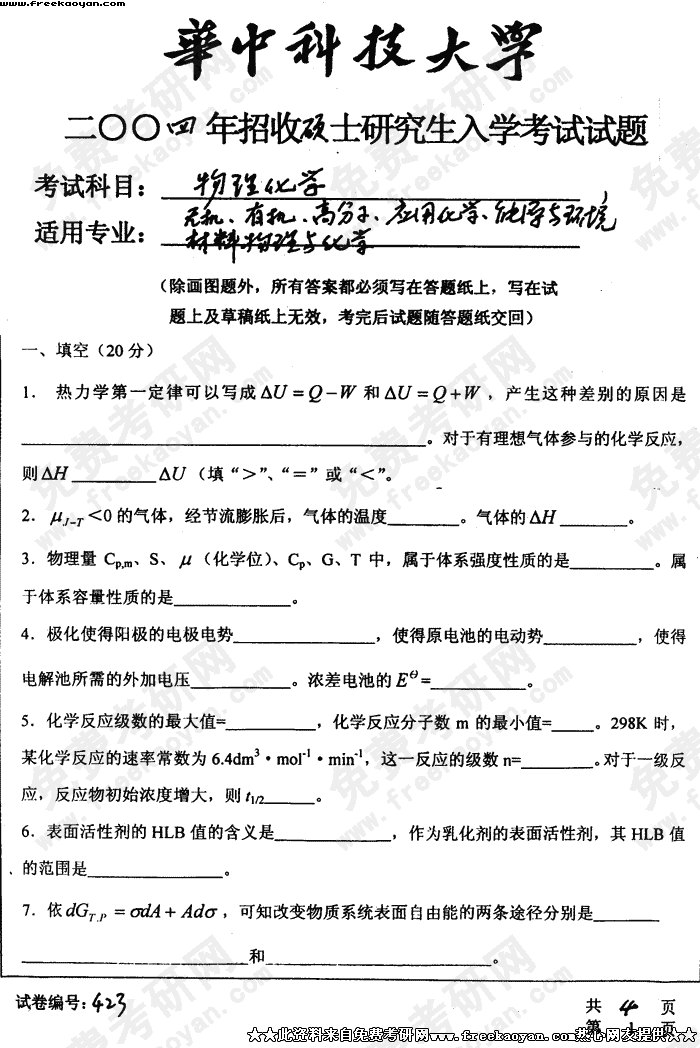 www.freekaoyan.com
華中科技大学
二〇〇四年招收硕士研究生入学考试试题
考试科目： 物理化学
适用专业： 无机、有机、高分子、应用化学、能源与环境，
材料物理与化学
（除画图题外，所有答案都必须写在答题纸上，写在试
题上及草稿纸上无效，考完后试题随答题纸交回）
一、填空（20 分）
1． 热力学第一定律可以写成 ΔU = Q − W 和 ΔU = Q + W ，产生这种差别的原因是
______。对于有理想气体参与的化学反应，
则 ΔH ______ ΔU （填“>”、“＝”或“<”。
2．μJ-T＜0 的气体，经节流膨胀后，气体的温度______。气体的 ΔH ______。
3．物理量 Cp,m、S、μ（化学位）、Cp、G、T 中，属于体系强度性质的是______。属
于体系容量性质的是______。
4．极化使得阳极的电极电势______，使得原电池的电动势______，使得
电解池所需的外加电压______。浓差电池的 E^Θ =______。
5．化学反应级数的最大值=______，化学反应分子数 m 的最小值=______。298K 时，
某化学反应的速率常数为 6.4dm³·mol⁻¹·min⁻¹，这一反应的级数 n=______。对于一级反
应，反应物初始浓度增大，则 t1/2______。
6．表面活性剂的 HLB 值的含义是______，作为乳化剂的表面活性剂，其 HLB 值
的范围是______。
7．依 dG_T,P = σdA + Adσ，可知改变物质系统表面自由能的两条途径分别是______
______和______。
试卷编号：423
共 4 页
第 1 页
★★此资料来自免费考研网www.freekaoyan.com热心网友提供★★